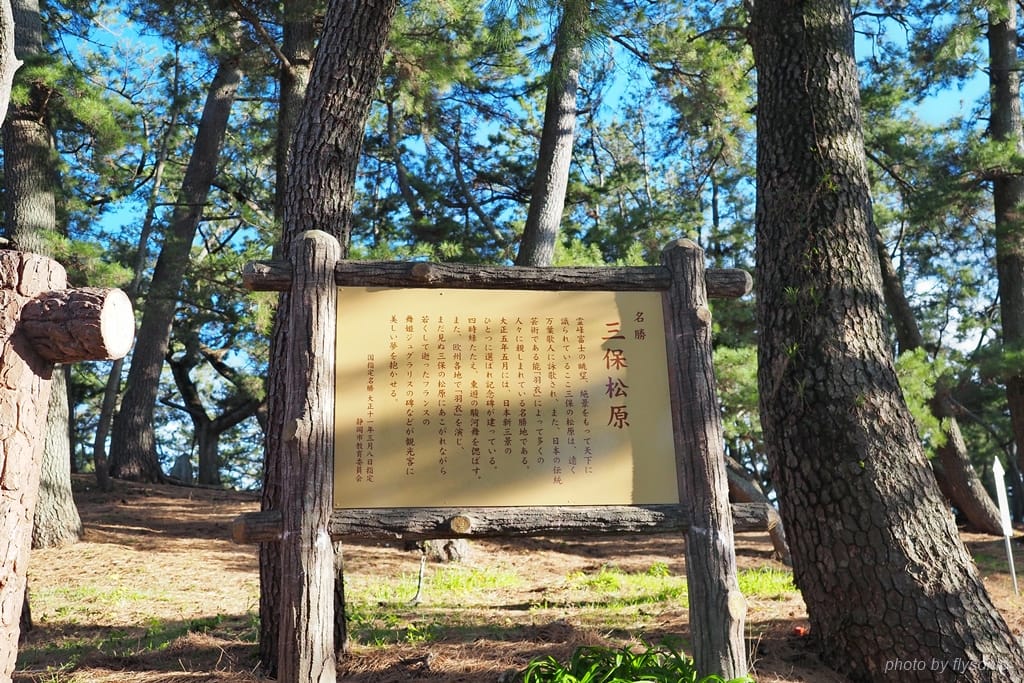 名勝
三保松原
霊峰富士の眺望、絶景をもって天下に
識られているここ三保の松原は、遠く
万葉歌人に詠歌され、また、日本の伝統
芸術である能「羽衣」によって多くの
人々に親しまれている名勝地である。
大正五年五月には、日本新三景の
ひとつに選ばれ記念碑が建っている。
四時緑をたたえ、東遊の駿河舞を偲ばす。
また、欧州各地で「羽衣」を演じ、
まだ見ぬ三保の松原にあこがれながら
若くして逝ったフランスの
舞姫ジュグラリスの碑などが観光客に
美しい夢を抱かせる。
国指定名勝 大正十一年三月八日指定
静岡市教育委員会
photo by